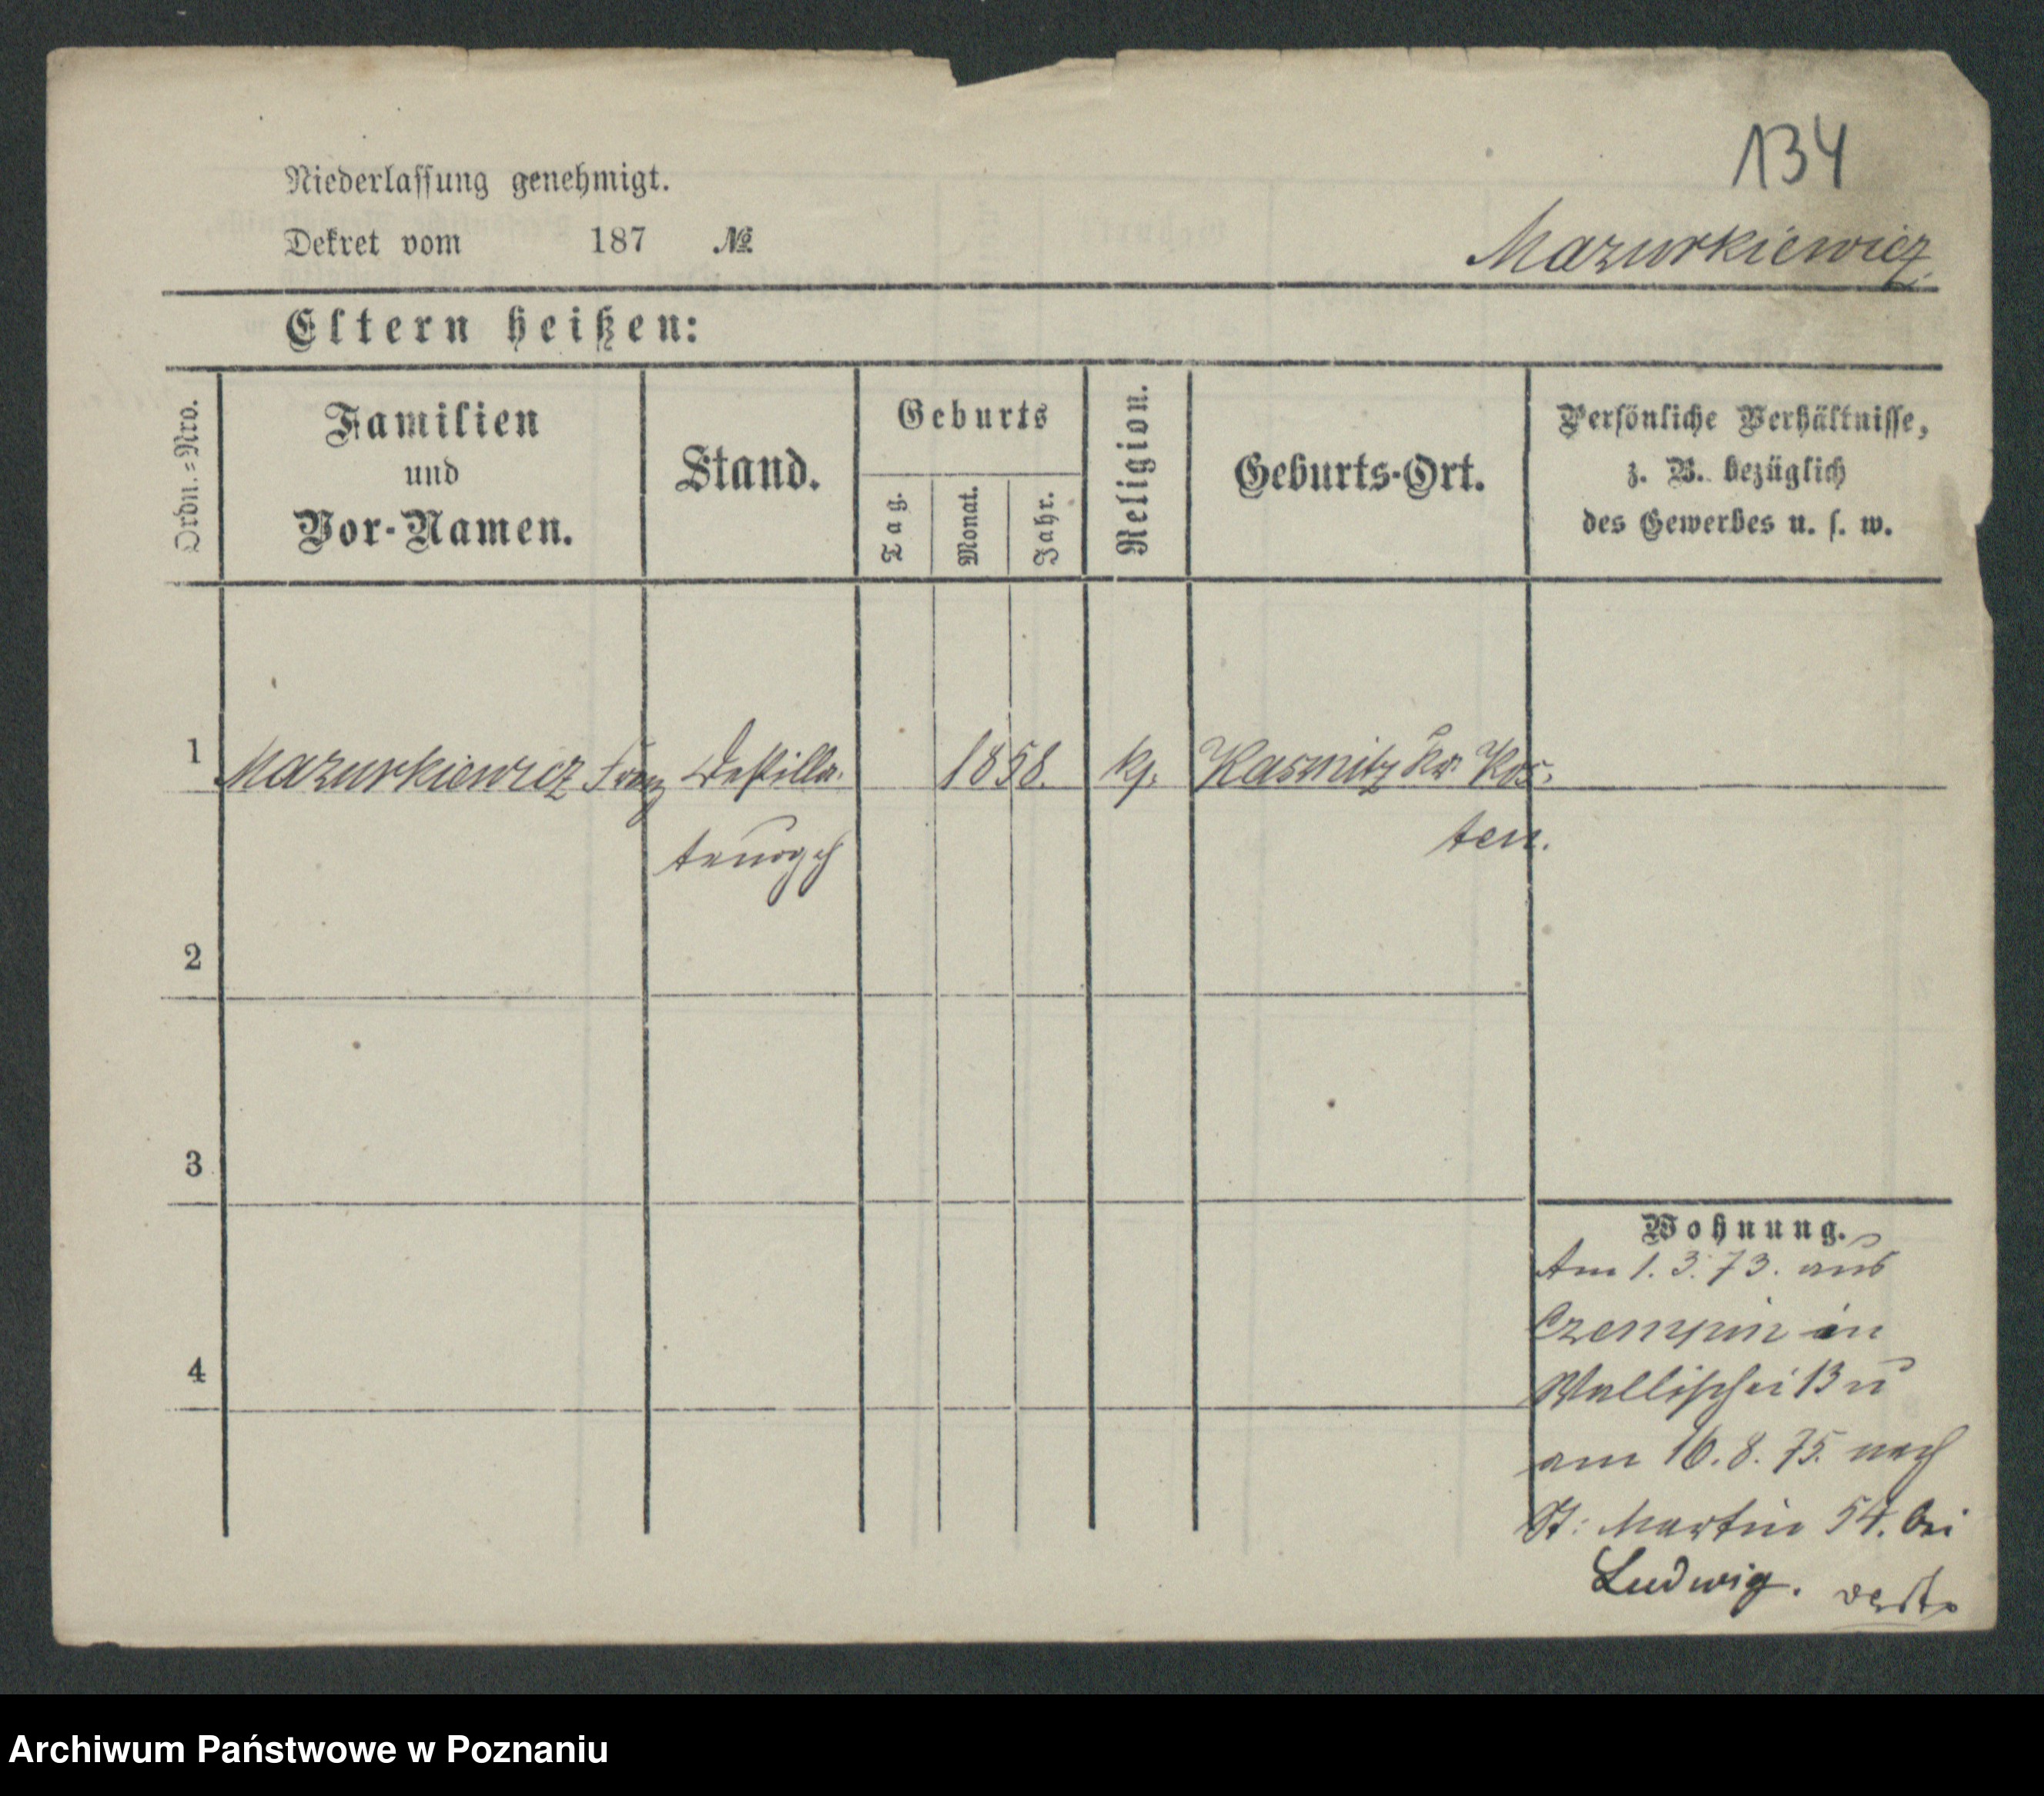 134
Niederlassung genehmigt.
Dekret vom 187 №
Mazurkiewicz
Eltern heißen:
Ordn.=Nro.
Familien
und
Vor-Namen.
Stand.
Geburts
Tag.
Monat.
Jahr.
Religion.
Geburts-Ort.
Persönliche Verhältnisse,
z. B. bezüglich
des Gewerbes u. s. w.
1 Mazurkiewicz Franz Destilla- 1858. Kasmitz Kr. Kos-
ten.
2
3
4
Wohnung.
Am 1. 3. 73. aus
Czempin in
Wallischei 13 u
am 16. 8. 75. nach
St: Martin 54. bei
Ludwig.
Archiwum Państwowe w Poznaniu